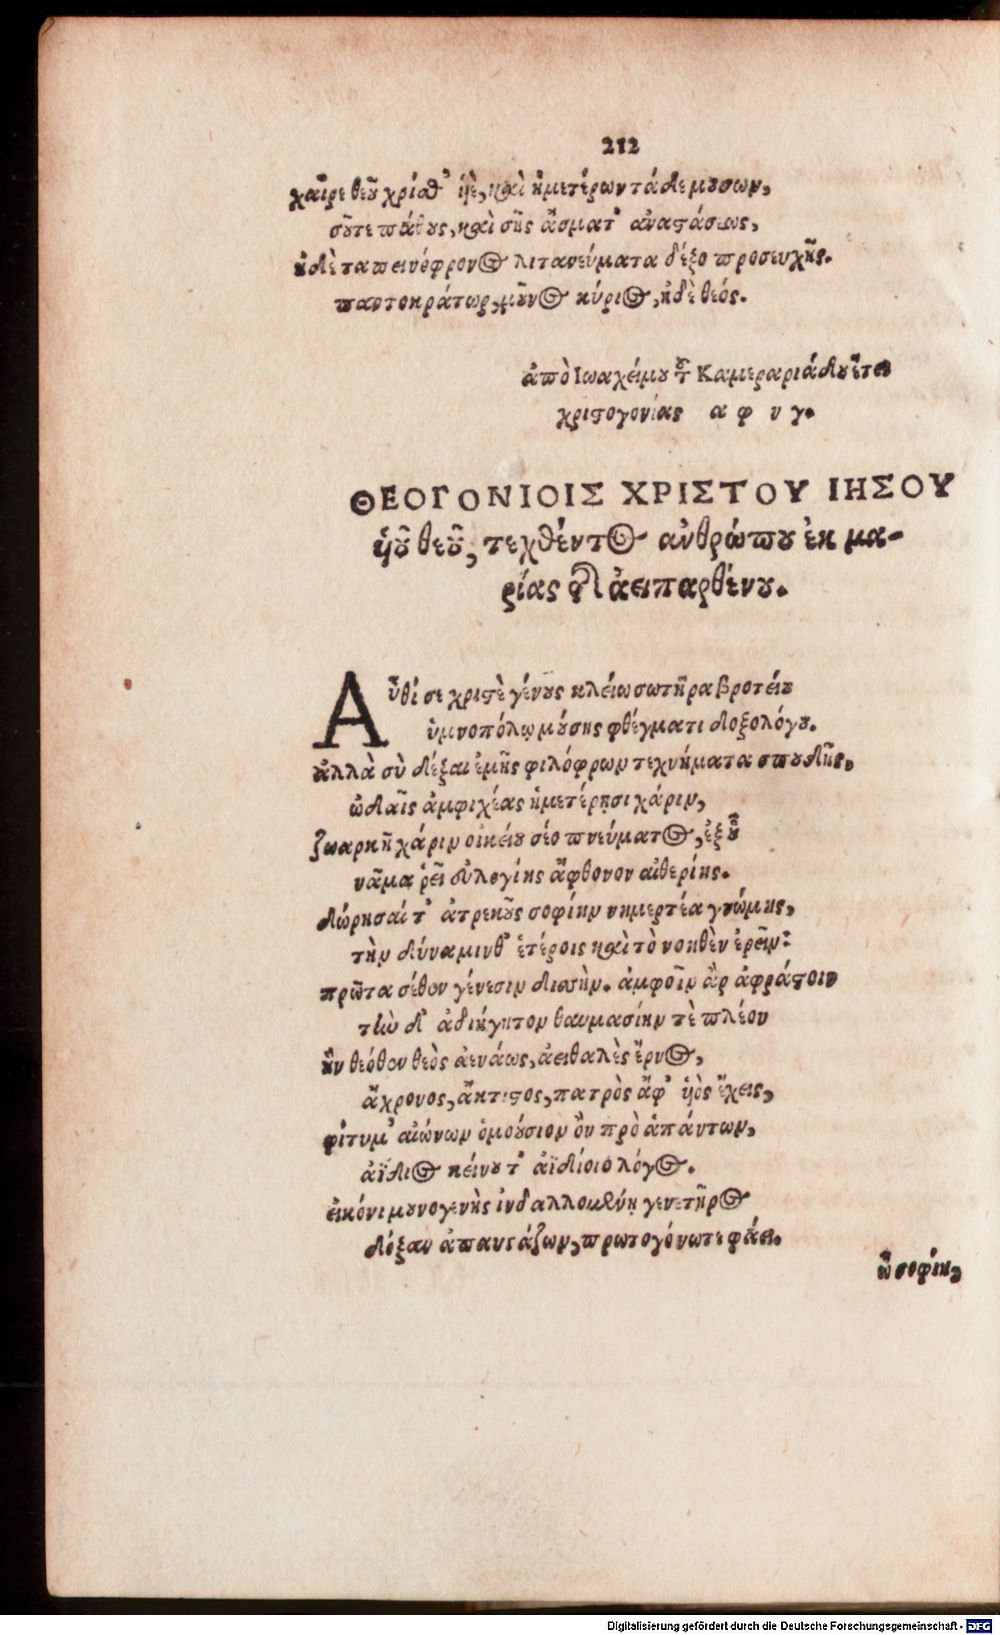 212
χαῖρε θεοῦ χρίσθ' ὑὲ, καὶ ἡμετέρων τάδε μουσῶν,
σοῦτε πάθους, καὶ σῆς ᾄσματ' ἀναστάσεως,
ἠδὲ ταπεινόφρονος λιτανεύματα δέξο προσευχῆς.
παντοκράτωρ, μοῦνος κύριος, ἠδὲ θεός.
ἀπὸ Ἰωαχείμου τοῦ Καμεραριάδου ἔτει
χριστογονίας α φ ν γ.
ΘΕΟΓΟΝΙΟΙΣ ΧΡΙΣΤΟΥ ΙΗΣΟΥ
ὑοῦ θεοῦ, τεχθέντος ἀνθρώπου ἐκ μα-
ρίας τῆς ἀειπαρθένου.
Αὖθί σε χριστὲ γένους κλείω σωτῆρα βροτείου
ὑμνοπόλῳ μούσης φθέγματι δοξολόγου.
ἀλλὰ σὺ δέξαι ἐμῆς φιλόφρων τεχνήματα σπουδῆς,
ᾠδαῖς ἀμφιχέας ἡμετέρῃσι χάριν,
ζωαρκῆ χάριν οἰκείου σέο πνεύματος, ἐξ οὗ
νᾶμα ῥεῖ εὐλογίης ἄφθονον αἰθερίης.
δώρησαί τ' ἀτρεκοῦς σοφίην νημερτέα γνώμης,
τὴν δύναμινθ' ἑτέροις καὶ τὸ νοηθὲν ἐρεῖν·
πρῶτα σέθεν γένεσιν δισσήν. ἀμφοῖν ἂρ ἀφράστοιν
τὴν δ' ἀδιήγητον θαυμασίην τὲ πλέον
ἣν θεόθεν θεὸς ἀενάως, ἀειθαλὲς ἔρνος,
ἄχρονος, ἄκτιστος, πατρὸς ἄφ' ὑὸς ἔχεις,
φίτυμ' αἰώνων ὁμούσιον ὂν πρὸ ἁπάντων,
ἀΐδιος κείνου τ' ἀϊδίοιο λόγος.
εἰκόνι μουνογενὴς ἰνδαλλομένη γενετῆρος
δόξαν ἀπαυγάζων, πρωτογόνωτε φάει.
ὦ σοφίη,
Digitalisierung gefördert durch die Deutsche Forschungsgemeinschaft - DFG